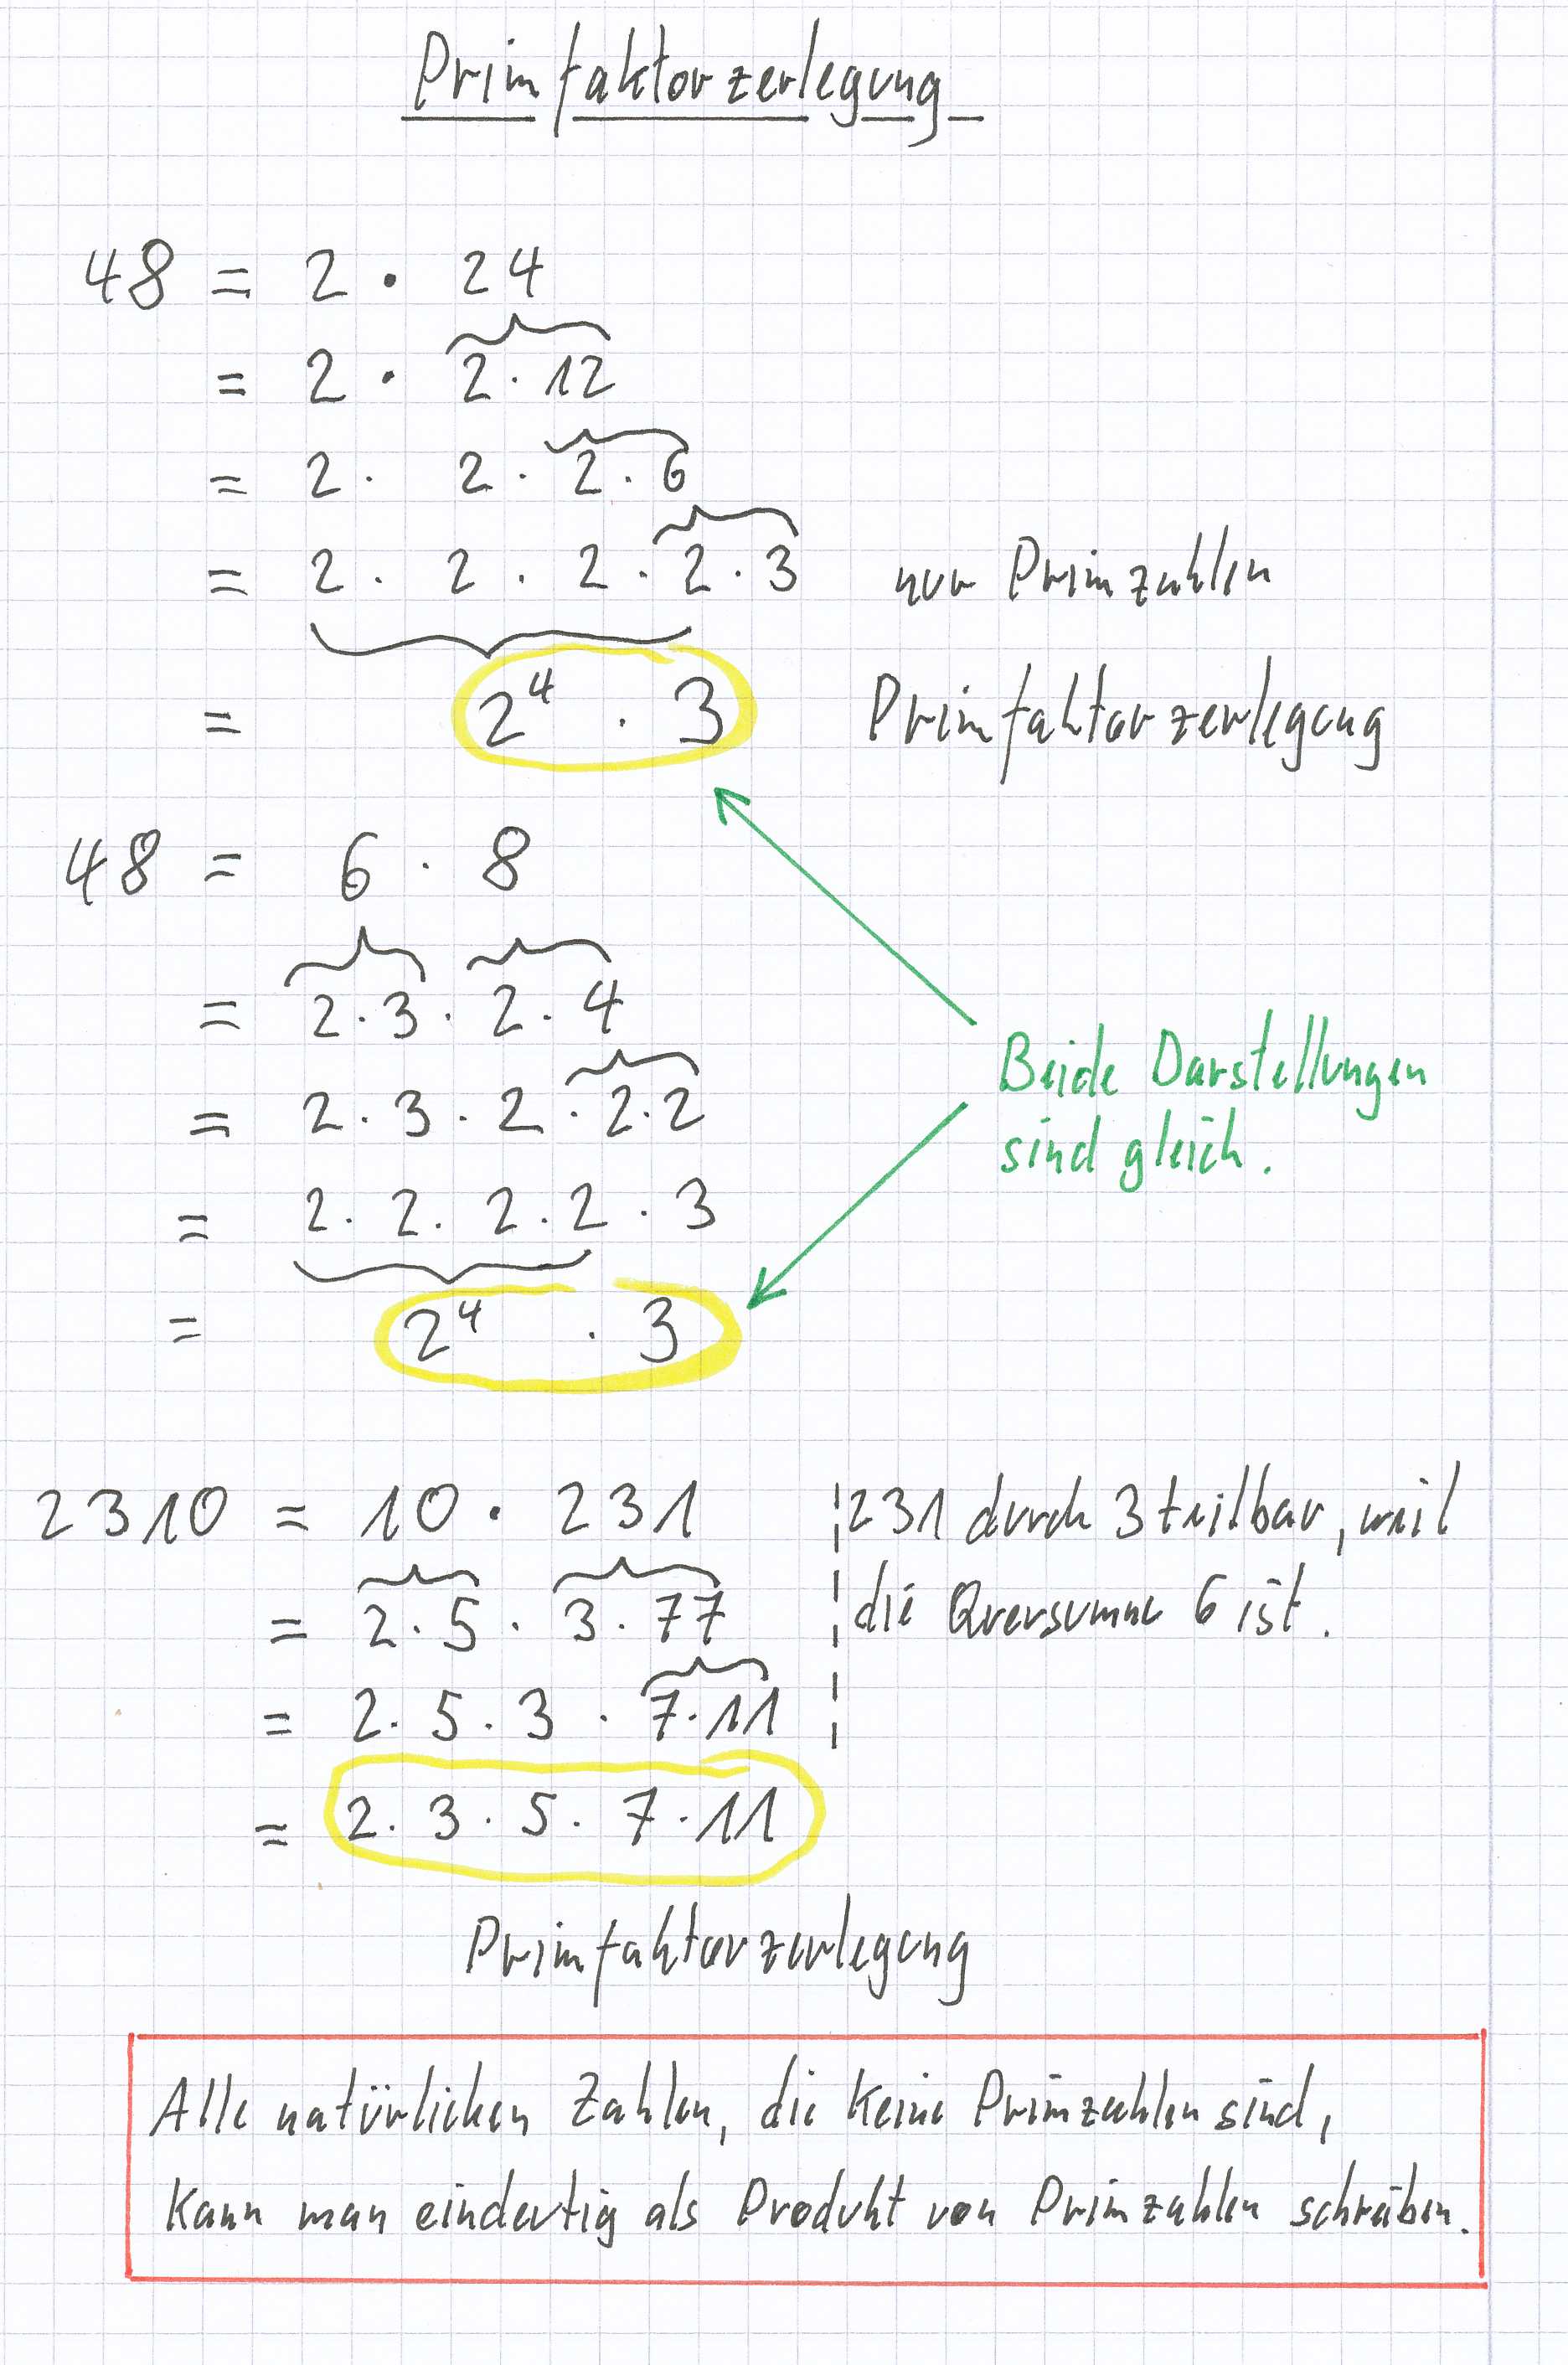 Primfaktorzerlegung
48 = 2 · 24
= 2 · 2 · 12
= 2 · 2 · 2 · 6
= 2 · 2 · 2 · 2 · 3 nur Primzahlen
= 2⁴ · 3 Primfaktorzerlegung
48 = 6 · 8
= 2 · 3 · 2 · 4
= 2 · 3 · 2 · 2 · 2
= 2 · 2 · 2 · 2 · 3
= 2⁴ · 3
Beide Darstellungen
sind gleich.
2310 = 10 · 231
= 2 · 5 · 3 · 77
= 2 · 5 · 3 · 7 · 11
= 2 · 3 · 5 · 7 · 11
231 durch 3 teilbar, weil
die Quersumme 6 ist.
Primfaktorzerlegung
Alle natürlichen Zahlen, die keine Primzahlen sind,
kann man eindeutig als Produkt von Primzahlen schreiben.